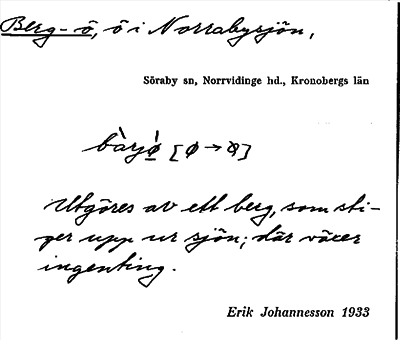 Berg-ö, ö i Norrabysjön,
Söraby sn, Norrvidinge hd., Kronobergs län
bàrjǿ [ø → ꞝ]
Utgöres av ett berg, som sti-
ger upp ur sjön; där växer
ingenting.
Erik Johannesson 1933